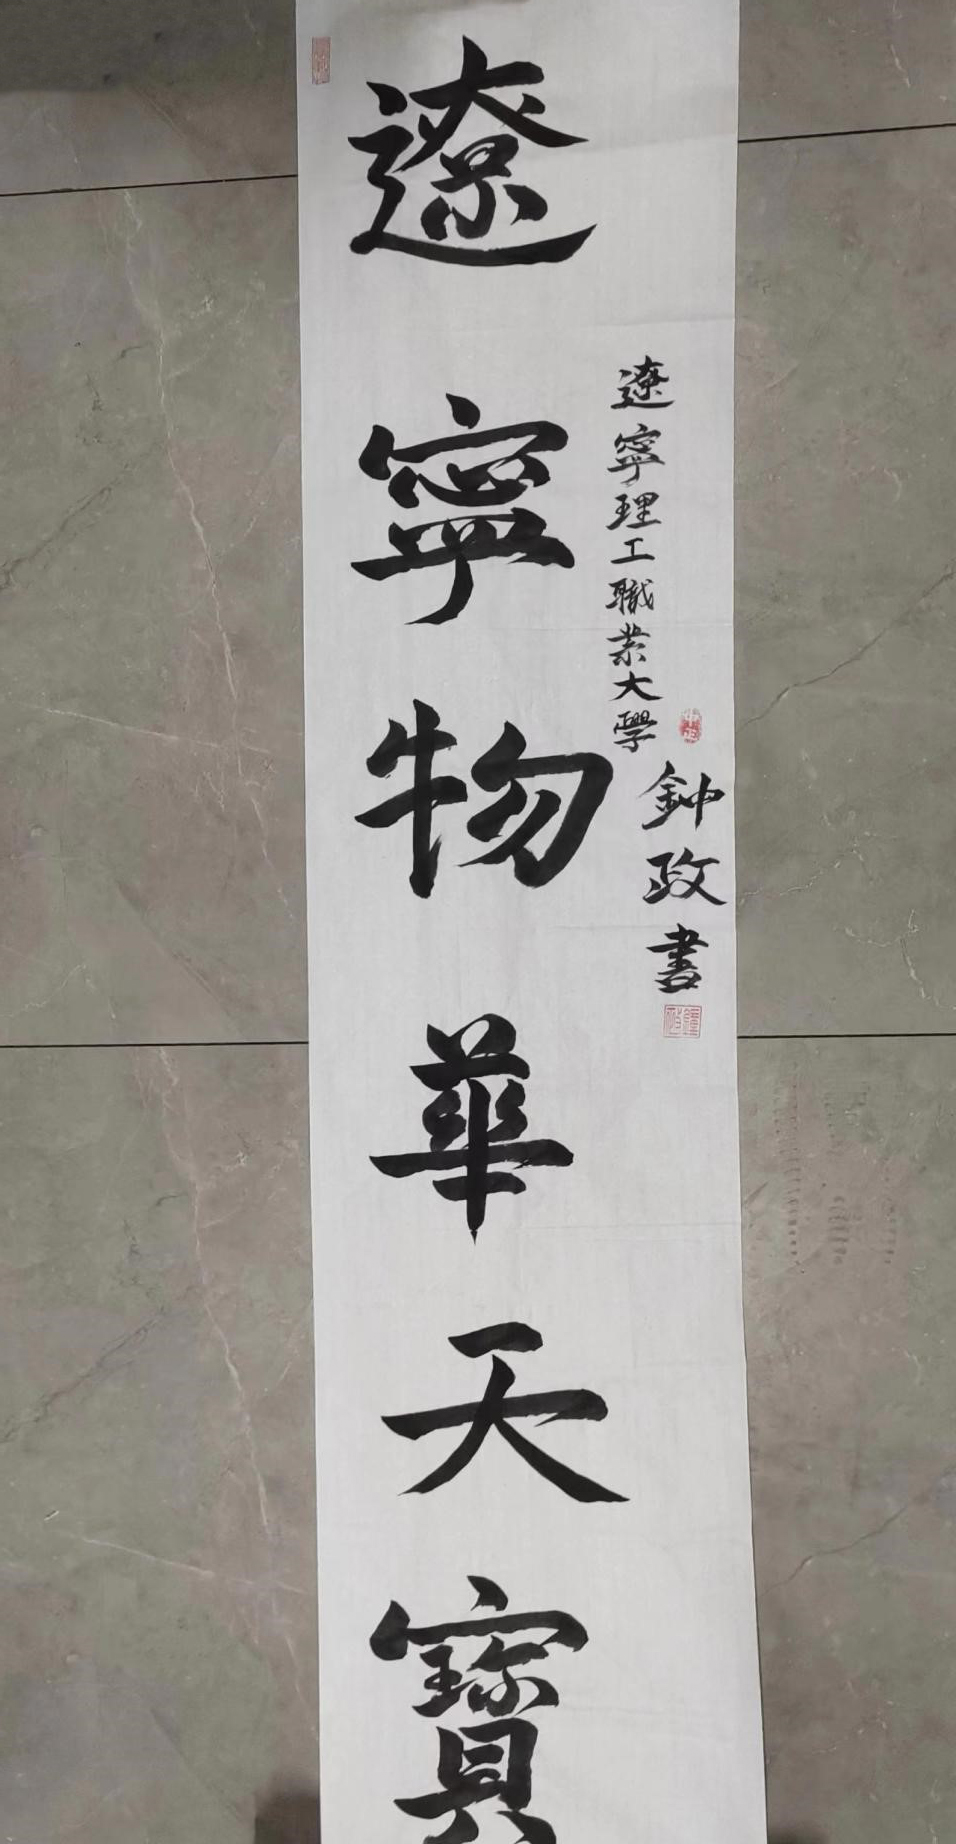 遼寧物華天寶
遼寧理工職業大學
鈡政書
中正